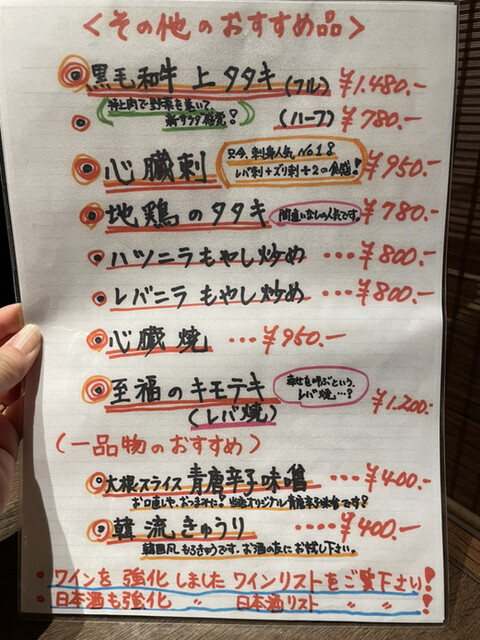 ＜その他のおすすめ品＞
黒毛和牛 上 タタキ (フル) ¥1.480.-
特上肉で野菜を巻いて
新サラダ感覚!
(ハーフ) ¥780.-
心臓刺
只今、刺身人気No.1!!
レバ刺+ズリ刺÷2の食感!
¥950.-
地鶏のタタキ
間違いなしの人気です。
¥780.-
ハツニラもやし炒め ・・・¥800.-
レバニラもやし炒め ・・・¥800.-
心臓焼 ・・・¥950.-
至福のキモテキ
(レバ焼)
幸せを呼ぶという、
レバ焼…?
¥1.200.-
(一品物のおすすめ)
大根スライス 青唐辛子味噌 ・・・・¥400.-
お口直しや、おつまみに! 当店オリジナル青唐辛子味噌です!
韓流きゅうり ・・・・¥400.-
韓国風もろきゅうです。お酒の友にお試し下さい。
・ワインを強化しました ワインリストをご覧下さい!
・日本酒も強化 〃 日本酒リスト 〃 〃 !